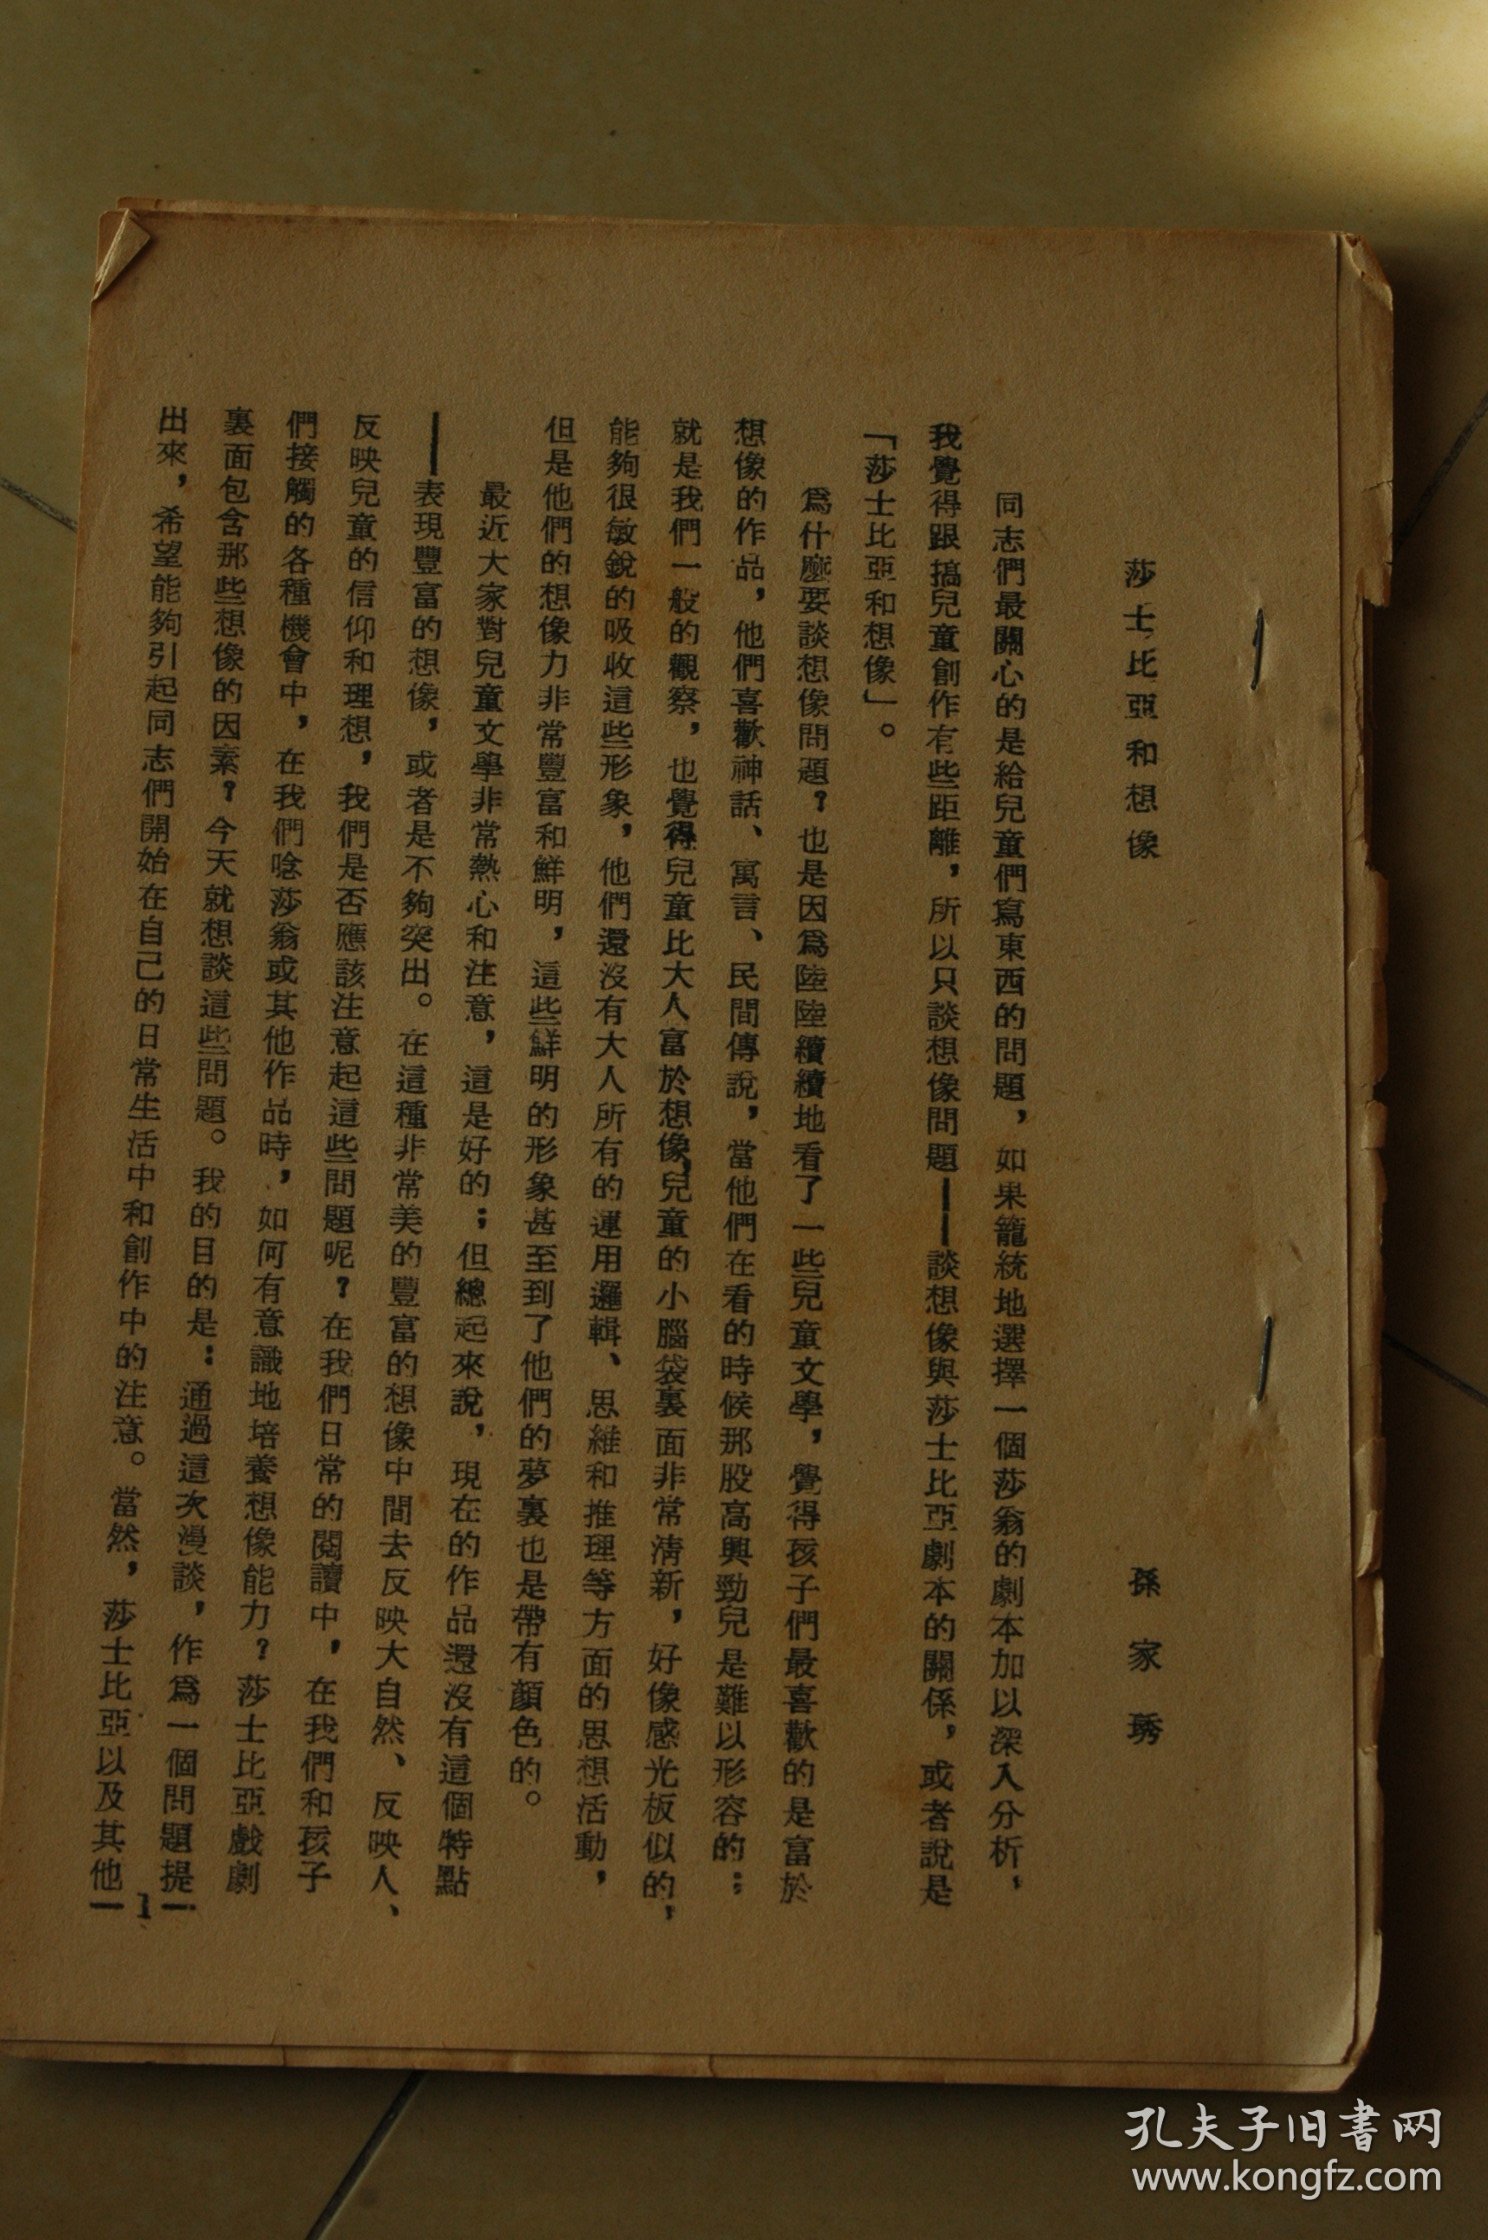 莎士比亞和想像
孫家琇
同志們最關心的是給兒童們寫東西的問題，如果籠統地選擇一個莎翁的劇本加以深入分析，
我覺得跟搞兒童創作有些距離，所以只談想像問題——談想像與莎士比亞劇本的關係，或者說是
「莎士比亞和想像」。
爲什麼要談想像問題？也是因爲陸陸續續地看了一些兒童文學，覺得孩子們最喜歡的是富於
想像的作品，他們喜歡神話、寓言、民間傳說，當他們在看的時候那股高興勁兒是難以形容的；
就是我們一般的觀察，也覺得兒童比大人富於想像，兒童的小腦袋裏面非常淸新，好像感光板似的，
能夠很敏銳的吸收這些形象，他們還沒有大人所有的運用邏輯、思維和推理等方面的思想活動，
但是他們的想像力非常豐富和鮮明，這些鮮明的形象甚至到了他們的夢裏也是帶有顏色的。
最近大家對兒童文學非常熱心和注意，這是好的；但總起來說，現在的作品還沒有這個特點
——表現豐富的想像，或者是不夠突出。在這種非常美的豐富的想像中間去反映大自然、反映人、
反映兒童的信仰和理想，我們是否應該注意起這些問題呢？在我們日常的閱讀中，在我們和孩子
們接觸的各種機會中，在我們唸莎翁或其他作品時，如何有意識地培養想像能力？莎士比亞戲劇
裏面包含那些想像的因素？今天就想談這些問題。我的目的是：通過這次漫談，作爲一個問題提
出來，希望能夠引起同志們開始在自己的日常生活中和創作中的注意。當然，莎士比亞以及其他
—1—
孔夫子旧书网
www.kongfz.com